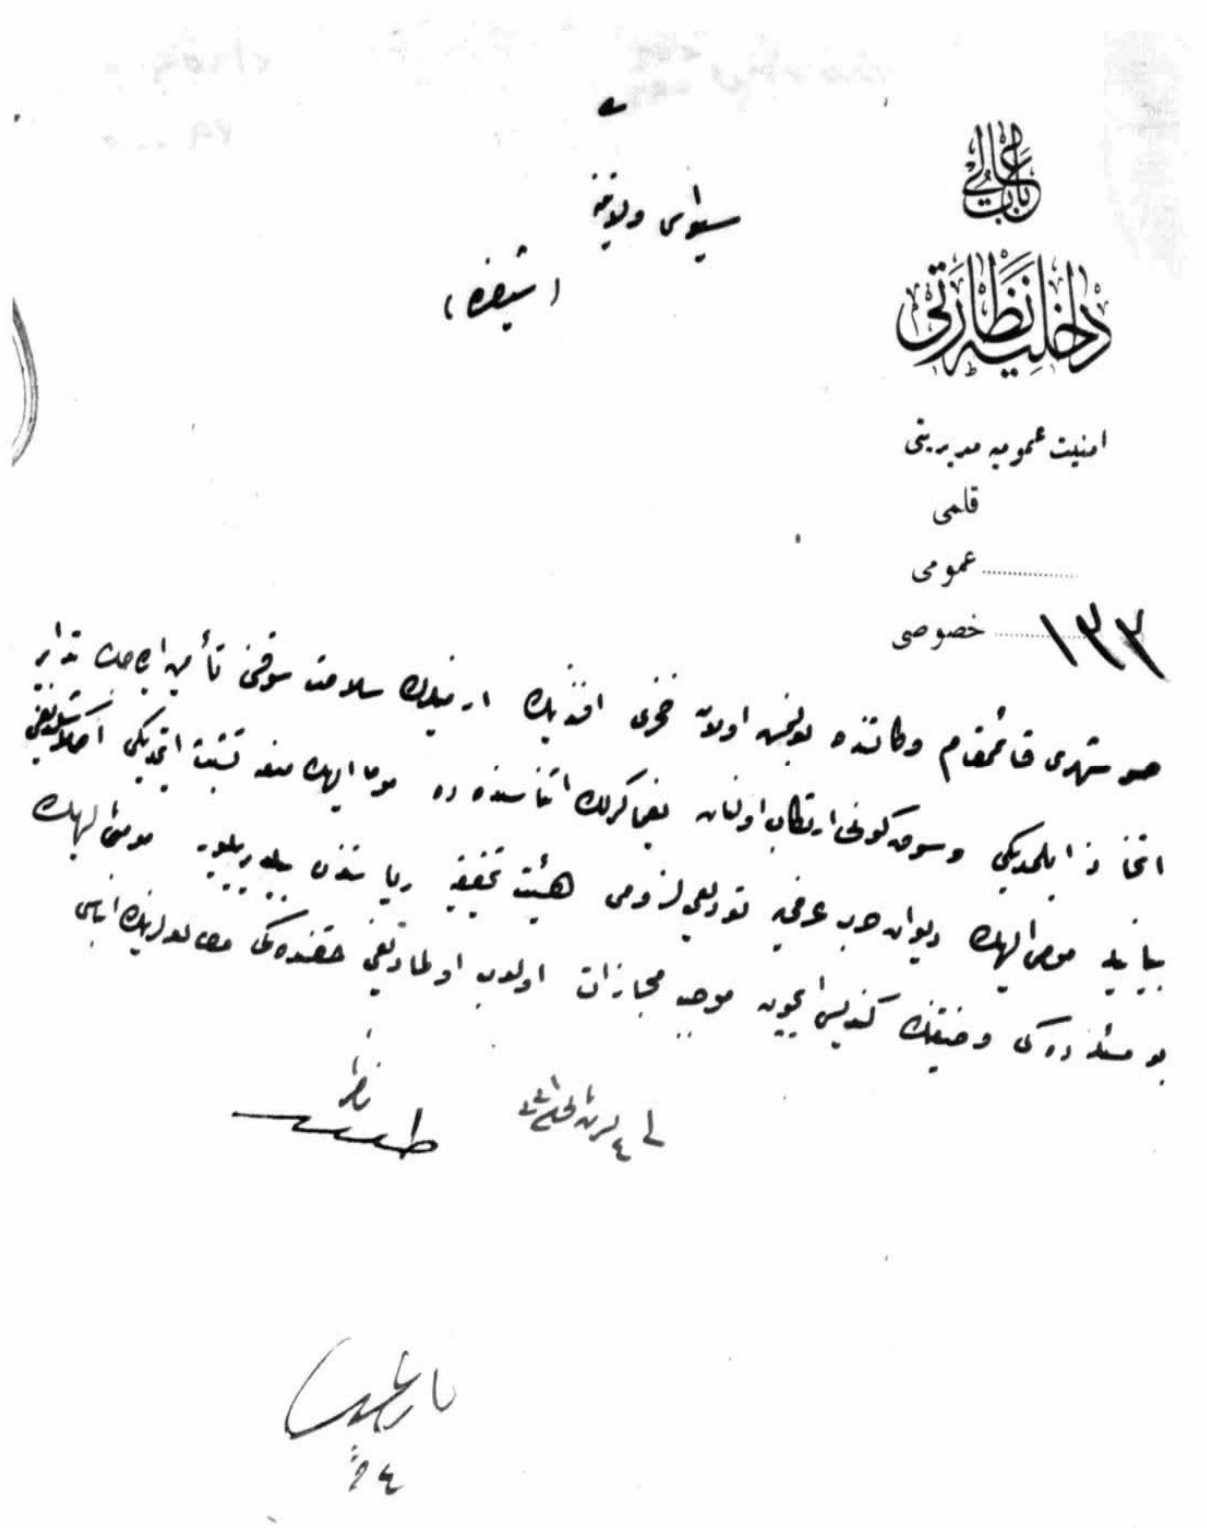 باب عالی
داخلیه نظارتی
امنیت عمومیه مدیریتی
قلمی
عمومی
خصوصی ١٣٣
سیواس ولایتنه
(شیفره)
صو شهری قائممقام وکالتنده بولنمش اولان فخری افندینك ارمنیلرك سلامت سوقنی تأمین ایده‌جك تدابیر
اتخاذ ایلمدیکی وسوق کونی ارتکاب اولنان یغماکرلك اثناسنده ده مومالیهك منعه تشبث ایتمدیکی آکلاشلدیغی
بیانیله مومی الیهك دیوان حرب عرفی‌یه تودیعی لزومی هیئت تحقیقیه ریاستندن بیلدیریلیور مومی الیهك
بو مسئله ده کی وضعیتنك کندیسی ایچون موجب مجازات اولوب اولمادیغی حقنده کی مطالعه لرینك انباسی
فی ٤
ناظر
طلعت
٤